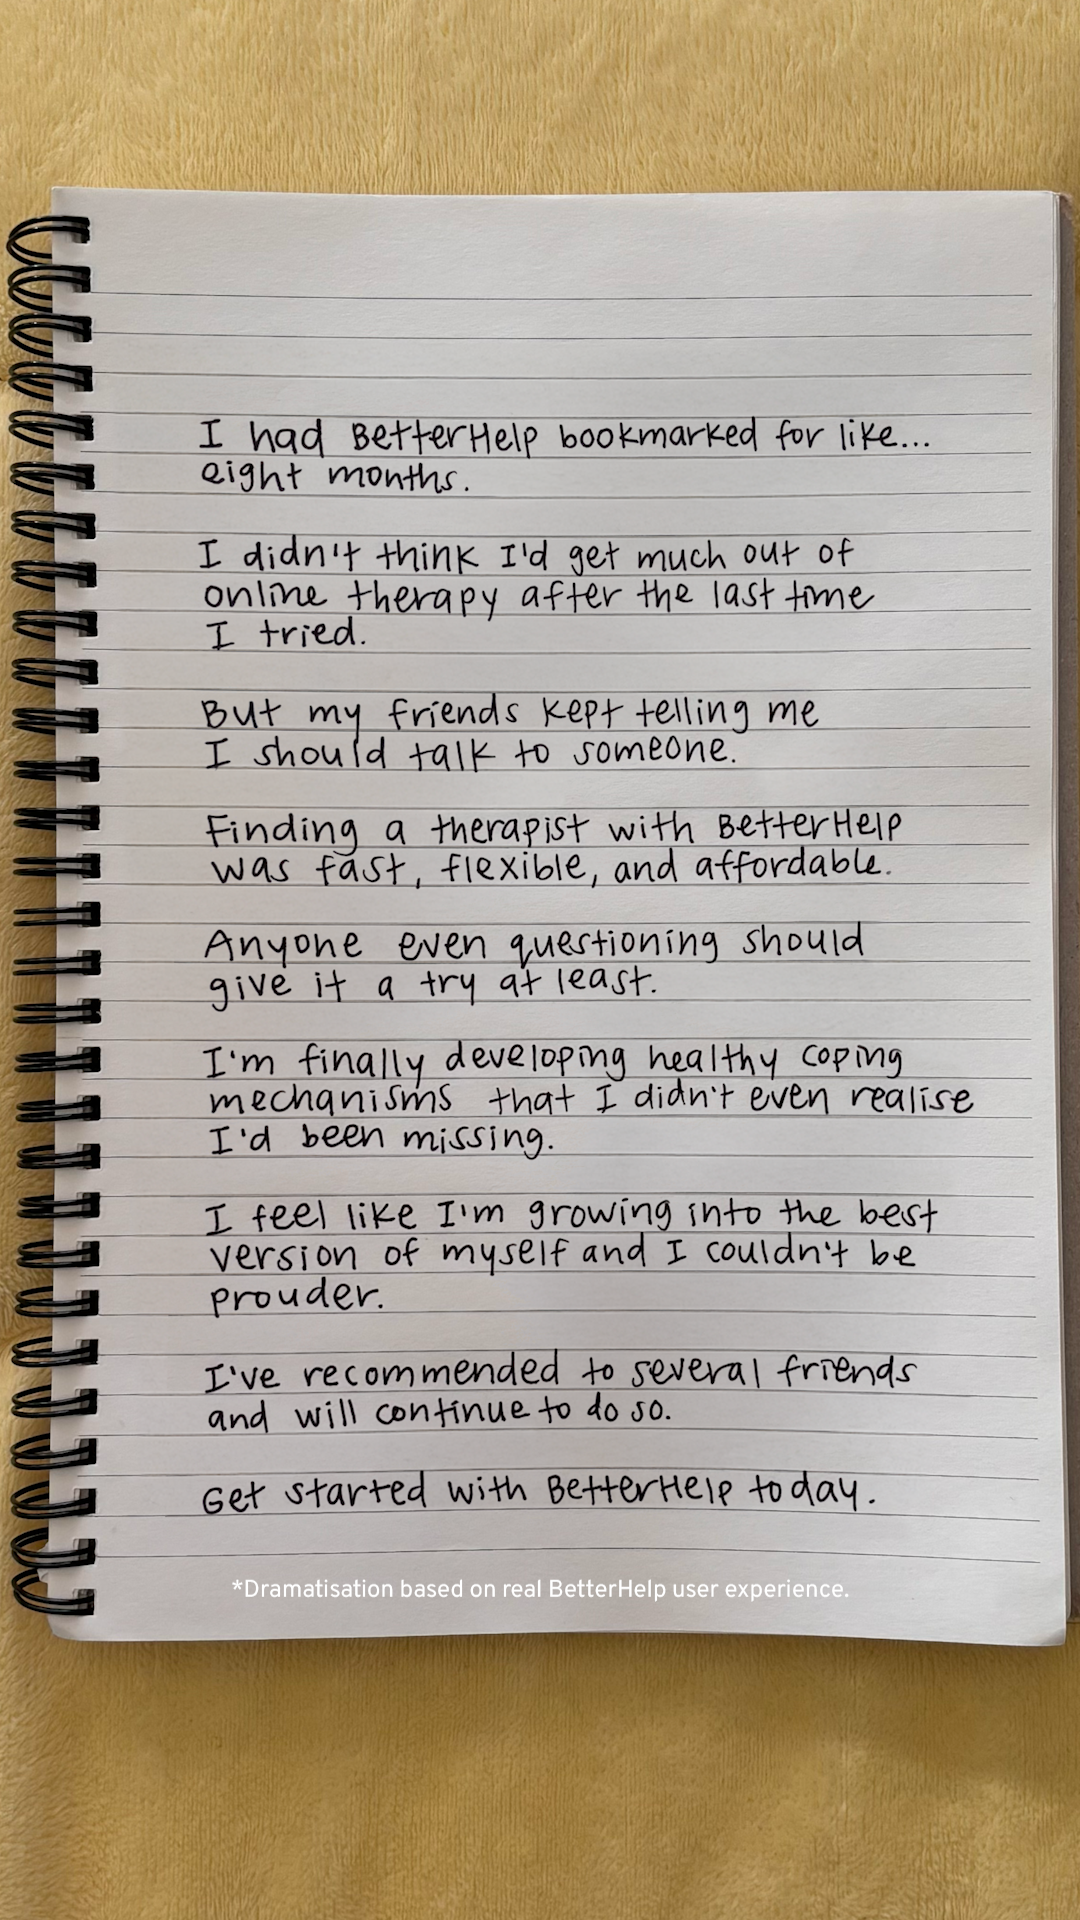 I had BetterHelp bookmarked for like...
eight months.
I didn't think I'd get much out of
online therapy after the last time
I tried.
But my friends kept telling me
I should talk to someone.
Finding a therapist with BetterHelp
was fast, flexible, and affordable.
Anyone even questioning should
give it a try at least.
I'm finally developing healthy coping
mechanisms that I didn't even realise
I'd been missing.
I feel like I'm growing into the best
version of myself and I couldn't be
prouder.
I've recommended to several friends
and will continue to do so.
Get started with BetterHelp today.
*Dramatisation based on real BetterHelp user experience.